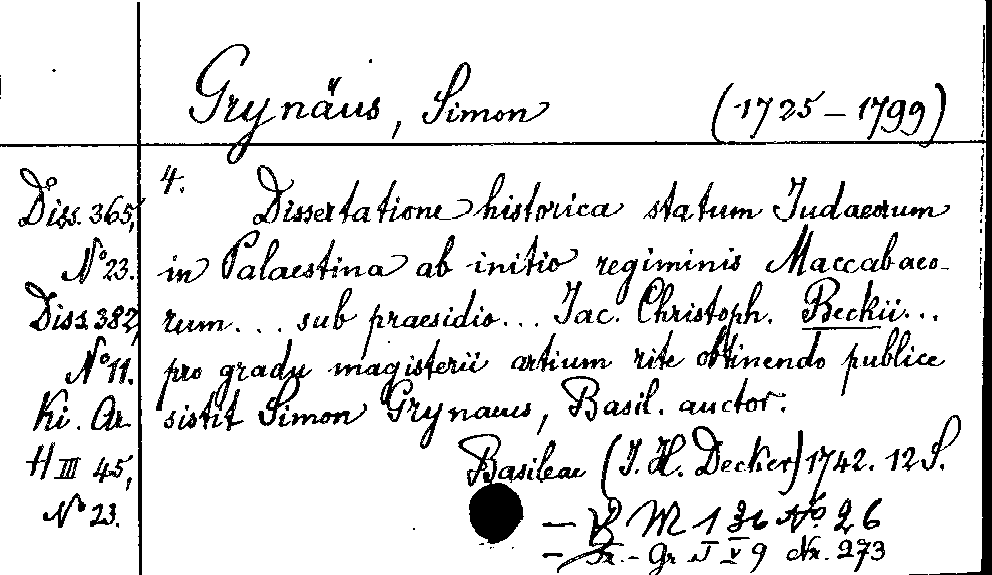 Grynäus, Simon (1725-1799)
4.
Diss. 365, Dissertatione historica statum Judaeorum
N° 23. in Palaestina ab initio regiminis Maccabaeo-
Diss. 382, rum... sub praesidio... Jac. Christoph. Beckii...
N° 11. pro gradu magisterii artium rite obtinendo publice
Ki. Ar. sistit Simon Grynaeus, Basil. auctor.
H III 45, Basileae (J. H. Decker) 1742. 12 S.
N° 23. — M 136 N° 26
— - Gr. I V 9 Nr. 273